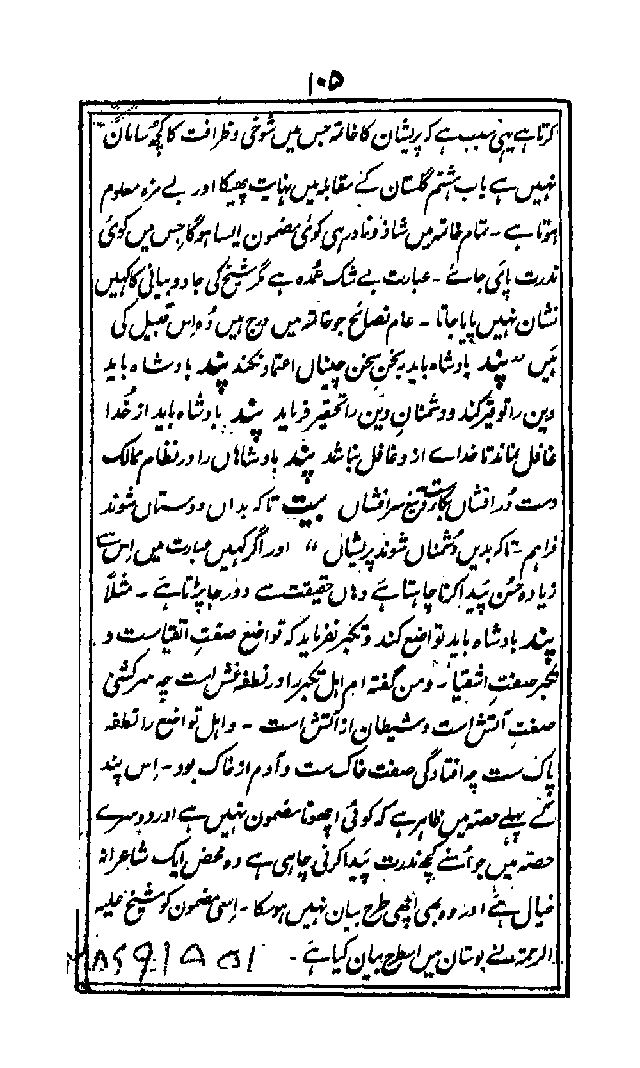 ۱۰۵
کرتا ہے یہی سبب ہے کہ پریشان کا خاتمہ جس میں شوخی و ظرافت کا کچھ سامان
نہیں ہے باب ہشتم گلستان کے مقابلہ میں نہایت پھیکا اور بے مزہ معلوم
ہوتا ہے ۔ تمام خاتمہ میں شاذ و نادر ہی کوئی مضمون ایسا ہوگا جس میں کوئی
ندرت پائی جائے ۔ عبارت بے شک عمدہ ہے مگر شیخ کی جادو بیانی کا کہیں
نشان نہیں پایا جاتا ۔ عام نصائح جو خاتمہ میں درج ہیں وہ اس قبیل کی
ہیں ”پند بادشاہ باید بسخن سخن چیناں اعتماد نکند پند بادشاہ باید
دین را توقیر کند و دشمنان دین را تحقیر فرماید پند بادشاہ باید از خدا
غافل نماند تا خداے از و غافل نباشد پند بادشاہاں را در نظام ممالک
دست دُر افشاں بکارست و تیغ سر افشاں بیت تا کہ بداں دوستاں شوند
فراہم ٭ تا کہ بدیں دشمناں شوند پریشاں“ اور اگر کہیں عبارت میں اس سے
زیادہ حسن پیدا کرنا چاہتا ہے وہاں حقیقت سے دور جا پڑتا ہے ۔ مثلاً
پند بادشاہ باید تواضع کند و تکبر نفرماید کہ تواضع صفت اتقیاست و
تکبر صفت اشقیا ۔ و من گفتہ ام اہل تکبر را در نطفہ غش است چہ سرکشی
صفت آتش است و شیطان از آتش است ۔ و اہل تواضع را نطفہ
پاک ست چہ افتادگی صفت خاک ست و آدم از خاک بود ۔ اس پند
کے پہلے حصہ میں ظاہر ہے کہ کوئی اچھوتا مضمون نہیں ہے اور دوسرے
حصہ میں جو اُسنے کچھ ندرت پیدا کرنی چاہی ہے وہ محض ایک شاعرانہ
خیال ہے اور وہ بھی اچھی طرح بیان نہیں ہو سکا ۔ اسی مضمون کو شیخ علیہ
الرحمۃ نے بوستان میں اسطرح بیان کیا ہے ۔